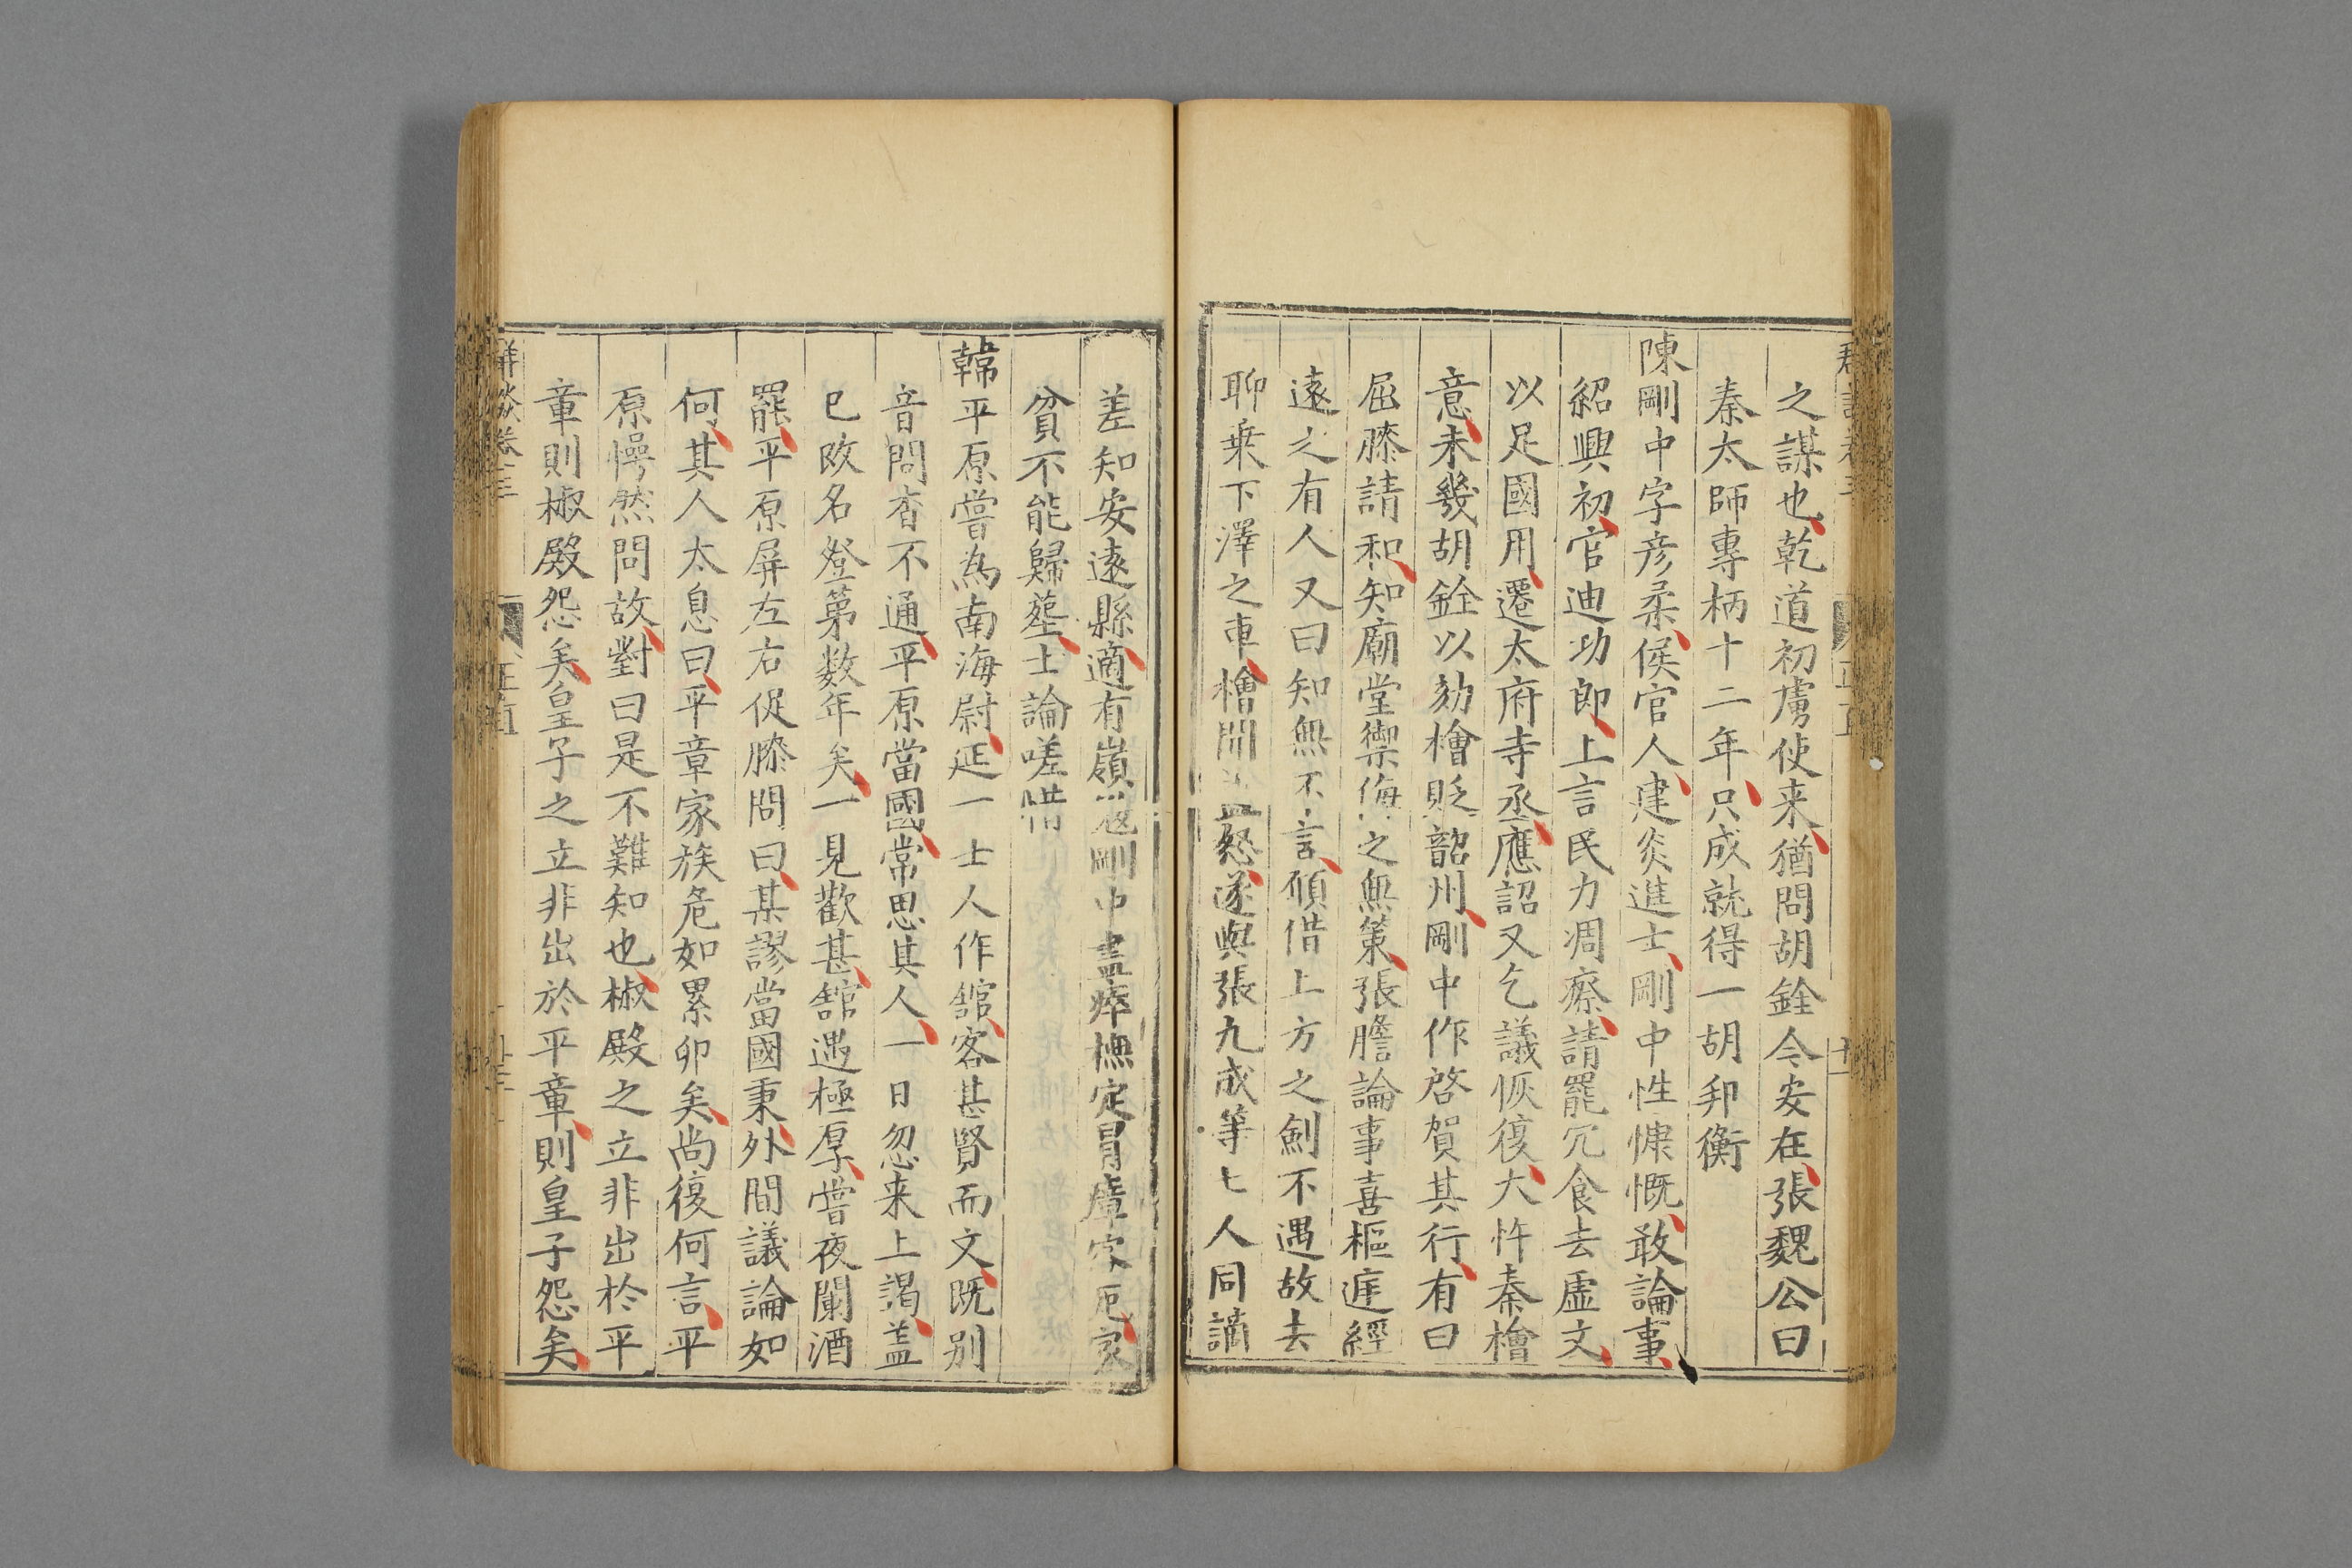 之謀也乾道初虜使来猶問胡銓今安在張魏公曰
秦太師專柄十二年只成就得一胡邦衡
陳剛中字彦柔候官人建炎進士剛中性慷慨敢論事
紹興初官迪功郎上言民力凋瘵請罷冗食去虛文
以足國用遷太府寺丞應詔又乞議恢復大忤秦檜
意未幾胡銓以劾檜貶韶州剛中作啓賀其行有曰
屈膝請和知廟堂禦侮之無策張膽論事喜樞庭經
遠之有人又曰知無不言願借上方之劍不遇故去
聊乗下澤之車檜聞益怒遂與張九成等七人同謫
差知安遠縣適有嶺寇剛中盡瘁撫定冒瘴
家
貧不能歸塟士論嗟惜
韓平原嘗為南海尉延一士人作舘客甚賢而文既别
音問杳不通平原當國常思其人一日忽来上謁盖
已改名登第数年矣一見歡甚舘遇極厚嘗夜闌酒
罷平原屏左右促膝問曰某謬當國秉外間議論如
何其人太息曰平章家族危如累卵矣尚復何言平
原愕然問故對曰是不難知也椒殿之立非出於平
章則椒殿怨矣皇子之立非出於平章則皇子怨矣